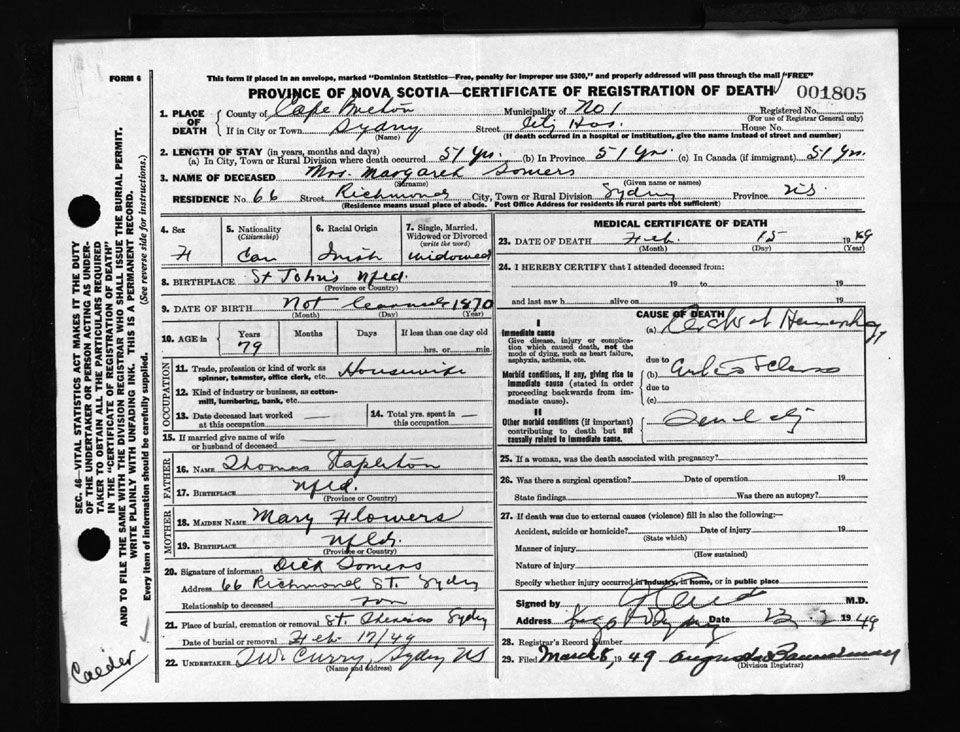 FORM 6
This form if placed in an envelope, marked "Dominion Statistics—Free, penalty for improper use $300," and properly addressed will pass through the mail "FREE"
PROVINCE OF NOVA SCOTIA—CERTIFICATE OF REGISTRATION OF DEATH 001805
1. PLACE OF DEATH
County of Cape Breton Municipality of No 1 Registered No.
(For use of Registrar General only)
If in City or Town Sydney Street City Hos. House No.
(Name) (If death occurred in a hospital or institution, give the name instead of street and number)
2. LENGTH OF STAY (in years, months and days)
(a) In City, Town or Rural Division where death occurred 51 Yrs. (b) In Province 51 Yrs. (c) In Canada (if immigrant) 51 Yrs.
3. NAME OF DECEASED Mrs. Margaret Somers
(Surname) (Given name or names)
RESIDENCE No. 66 Street Richmond City, Town or Rural Division Sydney Province N.S.
(Residence means usual place of abode. Post Office Address for residents in rural parts not sufficient)
4. Sex
F
5. Nationality
(Citizenship)
Can
6. Racial Origin
Irish
7. Single, Married, Widowed or Divorced
(write the word)
Widowed
8. BIRTHPLACE St John's Nfld.
(Province or Country)
9. DATE OF BIRTH Not learned 1870
(Month) (Day) (Year)
10. AGE in
Years Months Days If less than one day old
79 hrs. or min.
OCCUPATION
11. Trade, profession or kind of work as spinner, teamster, office clerk, etc. Housewife
12. Kind of industry or business, as cotton-mill, lumbering, bank, etc.
13. Date deceased last worked at this occupation
14. Total yrs. spent in this occupation
15. If married give name of wife or husband of deceased
FATHER
16. NAME Thomas Stapleton
17. BIRTHPLACE Nfld.
(Province or Country)
MOTHER
18. MAIDEN NAME Mary Flowers
19. BIRTHPLACE Nfld.
(Province or Country)
20. Signature of informant Dick Somers
Address 66 Richmond St. Sydney
Relationship to deceased son
21. Place of burial, cremation or removal St. Theresas Sydney
Date of burial or removal Feb 17/49
22. UNDERTAKER Curry, Sydney NS
(Name and address)
MEDICAL CERTIFICATE OF DEATH
23. DATE OF DEATH Feb. 15 1949
(Month) (Day) (Year)
24. I HEREBY CERTIFY that I attended deceased from:
19 to 19
and last saw h alive on 19
CAUSE OF DEATH
I
Immediate cause
Give disease, injury or complication which caused death, not the mode of dying, such as heart failure, asphyxia, asthenia, etc.
(a) Hemorrhage
due to
Morbid conditions, if any, giving rise to immediate cause (stated in order proceeding backwards from immediate cause).
(b)
due to
(c)
II
Other morbid conditions (if important) contributing to death but not causally related to immediate cause.
Senility
25. If a woman, was the death associated with pregnancy?
26. Was there a surgical operation? Date of operation 19
State findings Was there an autopsy?
27. If death was due to external causes (violence) fill in also the following:—
Accident, suicide or homicide? Date of injury 19
(State which)
Manner of injury
(How sustained)
Nature of injury
Specify whether injury occurred in industry, in home, or in public place
Signed by M.D.
Address Date 2 1949
28. Registrar's Record Number
29. Filed March 8, 1949 Bannerman
(Division Registrar)
SEC. 46—VITAL STATISTICS ACT MAKES IT THE DUTY
OF THE UNDERTAKER OR PERSON ACTING AS UNDER-
TAKER TO OBTAIN ALL THE PARTICULARS REQUIRED
IN THE "CERTIFICATE OF REGISTRATION OF DEATH"
AND TO FILE THE SAME WITH THE DIVISION REGISTRAR WHO SHALL ISSUE THE BURIAL PERMIT.
WRITE PLAINLY WITH UNFADING INK. THIS IS A PERMANENT RECORD.
Every item of information should be carefully supplied. (See reverse side for instructions.)